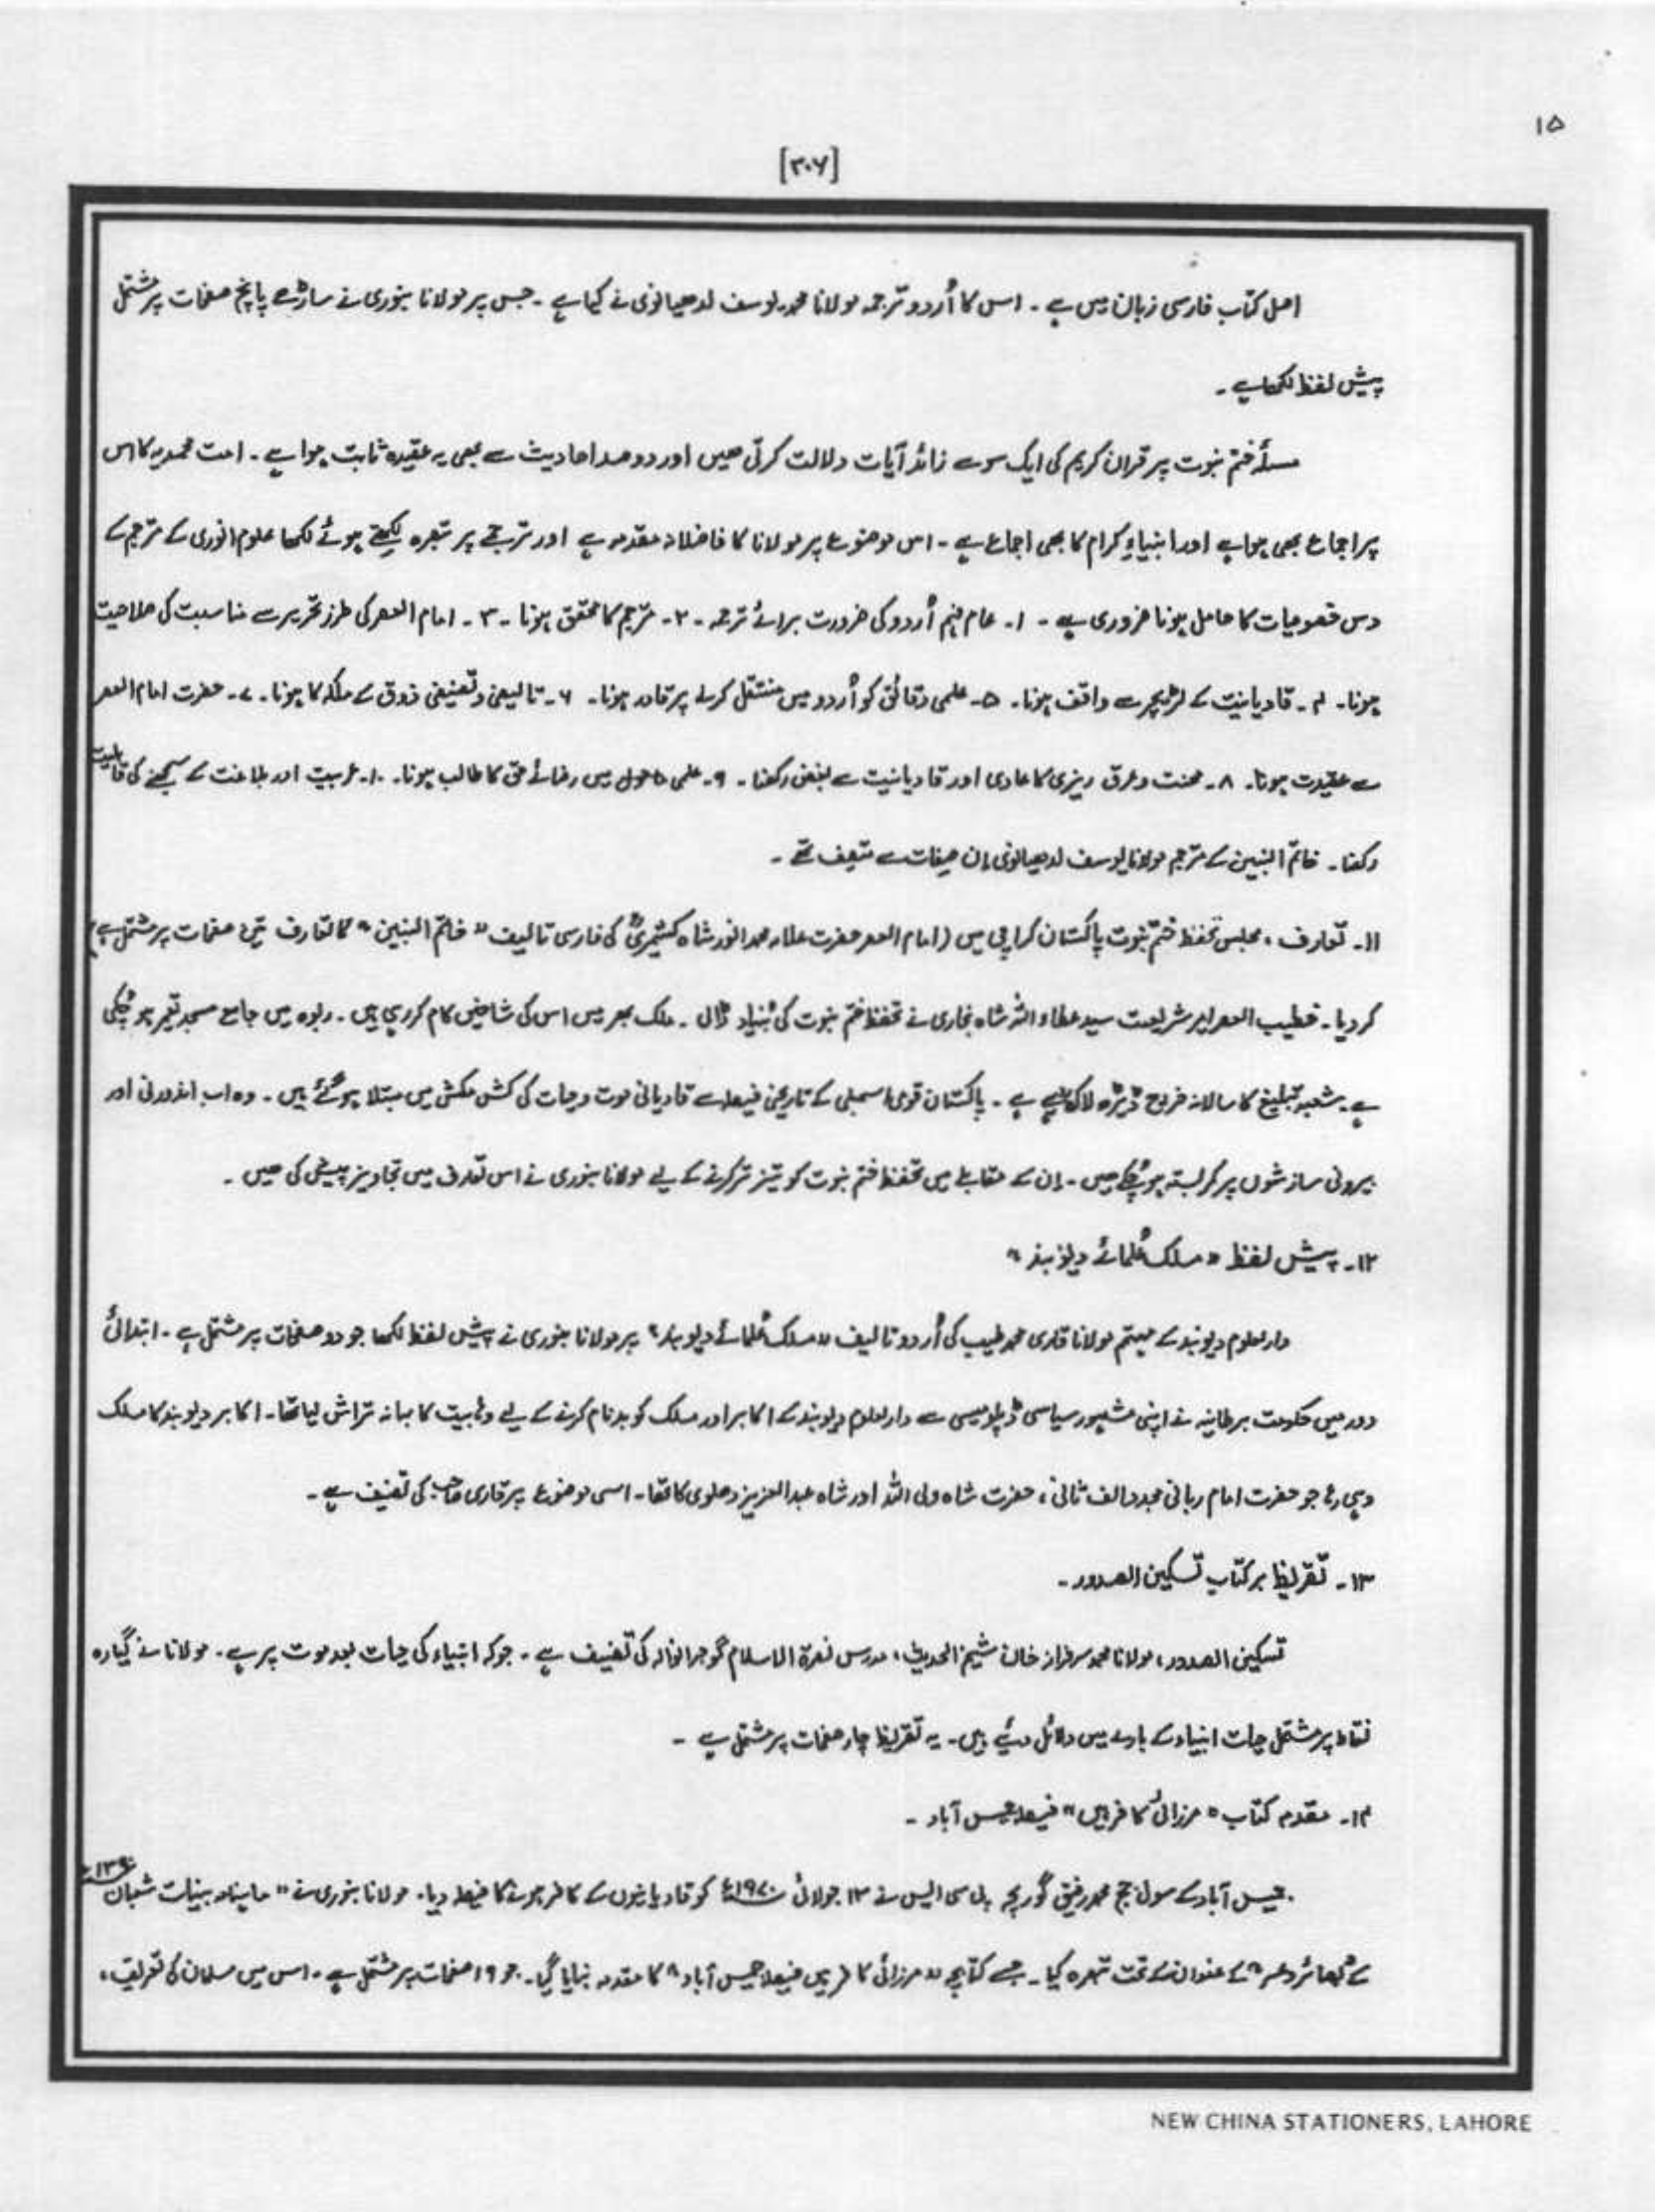 ۱۵
[۳۰۶]
اصل کتاب فارسی زبان میں ہے ۔ اس کا اُردو ترجمہ مولانا محمد یوسف لدھیانوی نے کیا ہے ۔ جس پر مولانا بنوری نے ساڑھے پانچ صفحات پر مشتمل
پیش لفظ لکھا ہے ۔
مسئلہ ختم نبوت پر قرآن کریم کی ایک سو سے زائد آیات دلالت کرتی ھیں اور دو صد احادیث سے بھی یہ عقیدہ ثابت ہوا ہے ۔ امت محمدیہ کا اس
پر اجماع بھی ہوا ہے اور انبیاءِ کرام کا بھی اجماع ہے ۔ اس موضوع پر مولانا کا فاضلانہ مقدمہ ہے اور ترجمے پر تبصرہ لکھتے ہوئے لکھا علوم انوری کے مترجم کے
دس خصوصیات کا حامل ہونا ضروری ہے ۔ ۱۔ عام فہم اُردو کی ضرورت برائے ترجمہ ۔ ۲۔ مترجم کا محقق ہونا ۔ ۳۔ امام العصر کی طرز تحریر سے مناسبت کی صلاحیت
ہونا ۔ ۴۔ قادیانیت کے لٹریچر سے واقف ہونا ۔ ۵۔ علمی دقائق کو اُردو میں منتقل کرنے پر قادر ہونا ۔ ۶۔ تالیفی و تصنیفی ذوق کے ملکہ کا ہونا ۔ ۷۔ حضرت امام العصر
سے عقیدت ہونا ۔ ۸۔ محنت و عرق ریزی کا عادی اور قادیانیت سے بغض رکھنا ۔ ۹۔ علمی ماحول میں رضائے حق کا طالب ہونا ۔ ۱۰۔ عربیت اور بلاغت کے سمجھنے کی قابلیت
رکھنا ۔ خاتم النبیین کے مترجم مولانا یوسف لدھیانوی اِن صفات سے متصف تھے ۔
۱۱۔ تعارف ، مجلس تحفظ ختم نبوت پاکستان کراچی میں (امام العصر حضرت علامہ محمد انور شاہ کشمیریؒ کی فارسی تالیف " خاتم النبیین " کا تعارف تین صفحات پر مشتمل ہے)
کر دیا ۔ خطیب العصر امیر شریعت سید عطاء اللہ شاہ بخاری نے تحفظ ختم نبوت کی بُنیاد ڈالی ۔ ملک بھر میں اس کی شاخیں کام کر رہی ہیں ۔ ربوہ میں جامع مسجد تعمیر ہو چُکی
ہے ۔ شعبہ تبلیغ کا سالانہ خروج ڈیڑھ لاکھ روپے ہے ۔ پاکستان قومی اسمبلی کے تاریخی فیصلہ سے قادیانی موت و حیات کی کش مکش میں مبتلا ہو گئے ہیں ۔ وہ اب اندورنی اور
بیرونی سازشوں پر کمر بستہ ہو چُکے ھیں ۔ اِن کے مقابلے میں تحفظ ختم نبوت کو تیز تر کرنے کے لیے مولانا بنوری نے اس تعارف میں تجاویز پیش کی ھیں ۔
۱۲۔ پیش لفظ " مسلک عُلمائے دیوبند "
دارالعلوم دیوبند کے مہتمم مولانا قاری محمد طیب کی اُردو تالیف " مسلک عُلمائے دیوبند " پر مولانا بنوری نے پیش لفظ لکھا جو دو صفحات پر مشتمل ہے ۔ ابتدائی
دور میں حکومت برطانیہ نے اپنی مشہور سیاسی ڈپلومیسی سے دارالعلوم دیوبند کے اکابر اور مسلک کو بدنام کرنے کے لیے وہابیت کا بہانہ تراش لیا تھا ۔ اکابر دیوبند کا مسلک
وہی رہا جو حضرت امام ربانی مجدد الف ثانی ، حضرت شاہ ولی اللہ اور شاہ عبدالعزیز دھلوی کا تھا ۔ اسی موضوع پر قاری صاحب کی تصنیف ہے ۔
۱۳۔ تقریظ بر کتاب تسکین الصدور ۔
تسکین الصدور ، مولانا محمد سرفراز خان شیخ الحدیث ، مدرس نصرۃ الاسلام گوجرانوالہ کی تصنیف ہے ۔ جو کہ انبیاء کی حیات بعد موت پر ہے ۔ مولانا نے گیارہ
نقاط پر مشتمل حیات انبیاء کے بارے میں دلائل دیئے ہیں ۔ یہ تقریظ چار صفحات پر مشتمل ہے ۔
۱۴۔ مقدمہ کتاب " مرزائی کافر ہیں " فیصلہ جیمس آباد ۔
جیمس آباد کے سول جج محمد رفیق گوریجہ پی سی ایس نے ۱۳ جولائی ۱۹۷۰ء کو قادیانیوں کے کافر ہونے کا فیصلہ دیا ۔ مولانا بنوری نے " ماہنامہ بینات شعبان ۱۳۹۰ھ
کے بصائر و عبر " کے عنوان کے تحت تبصرہ کیا ۔ جسے کتابچہ " مرزائی کافر ہیں فیصلہ جیمس آباد " کا مقدمہ بنایا گیا ۔ جو ۱۹ صفحات پر مشتمل ہے ۔ اس میں مسلمان کی تعریف ،
NEW CHINA STATIONERS, LAHORE